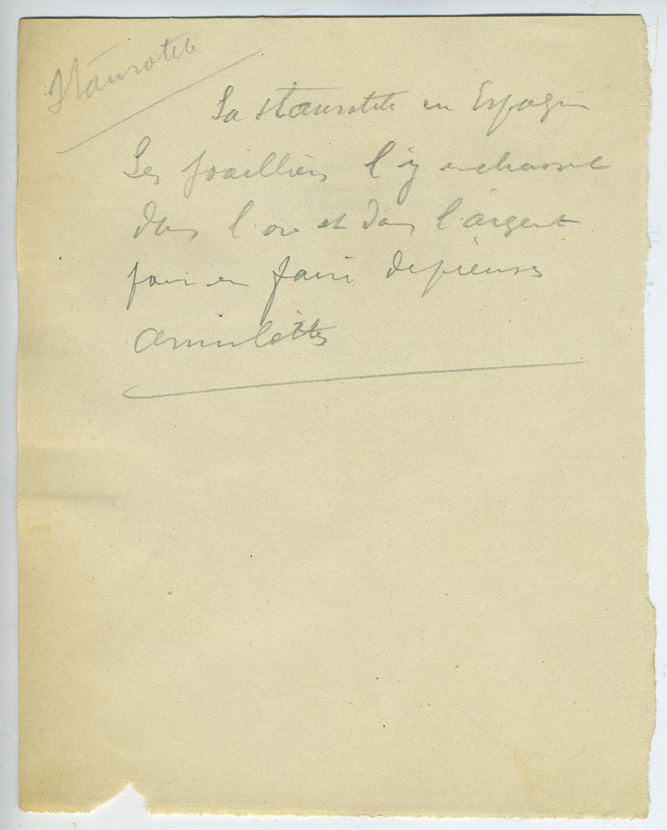 Staurotite
La staurotite en Espagne
Les joailliers l'y enchasse
dans l'or et dans l'argent
pour en faire de pieuses
amulettes